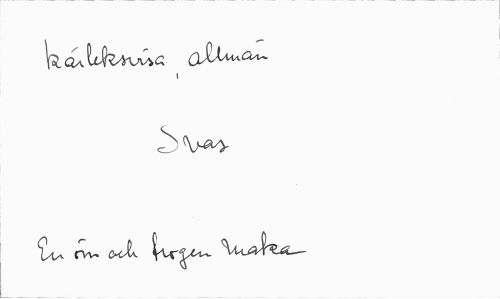 kärleksvisa, allmän
Svar
En öm och trogen maka